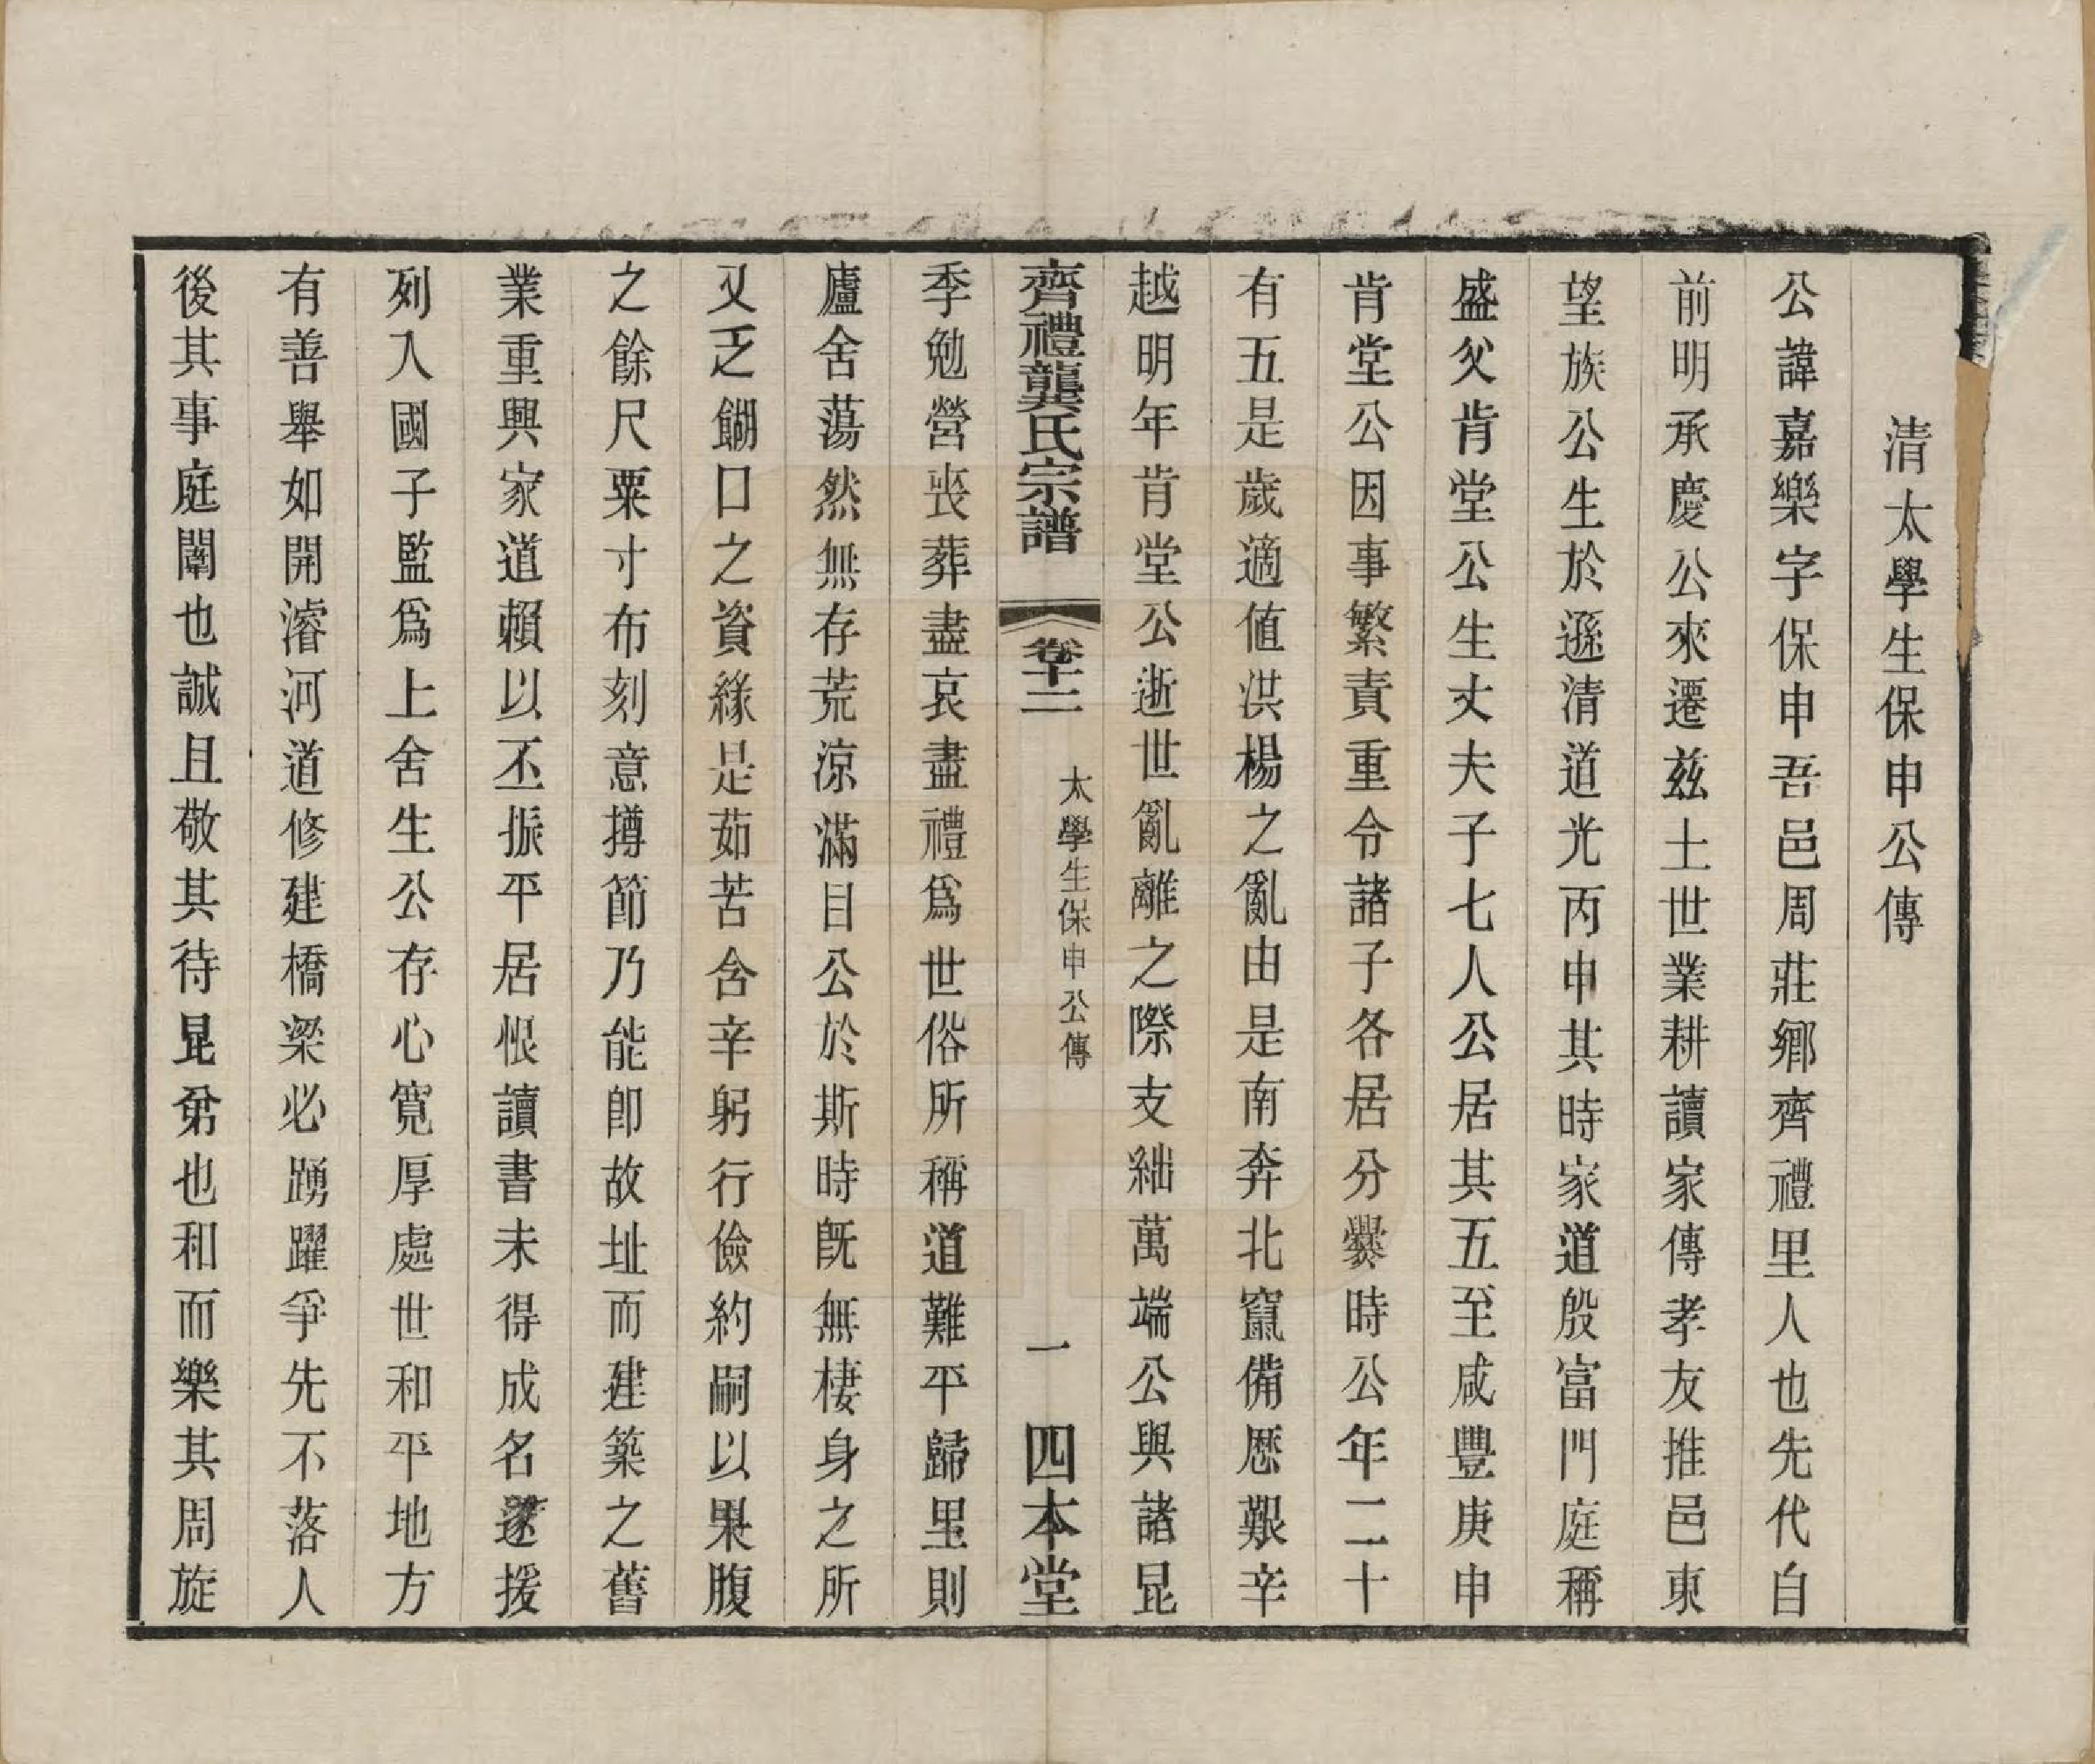 清太學生保申公傳
公諱嘉樂字保申吾邑周莊鄉齊禮里人也先代自
前明承慶公來遷兹土世業耕讀家傳孝友推邑東
望族公生於遜清道光丙申其時家道殷富門庭稱
盛父肯堂公生丈夫子七人公居其五至咸豐庚申
肯堂公因事繁責重令諸子各居分爨時公年二十
有五是歲適值洪楊之亂由是南奔北竄備歷艱辛
越明年肯堂公逝世亂離之際支絀萬端公與諸昆
齊禮龔氏宗譜
卷十二
太學生保申公傳
一
四本堂
季勉營喪葬盡哀盡禮爲世俗所稱道難平歸里則
廬舍蕩然無存荒涼滿目公於斯時旣無棲身之所
又乏餬口之資緣是茹苦含辛躬行儉約嗣以果腹
之餘尺粟寸布刻意撙節乃能卽故址而建築之舊
業重興家道賴以丕振平居恨讀書未得成名遂援
列入國子監爲上舍生公存心寬厚處世和平地方
有善舉如開濬河道修建橋梁必踴躍爭先不落人
後其事庭闈也誠且敬其待昆弟也和而樂其周旋